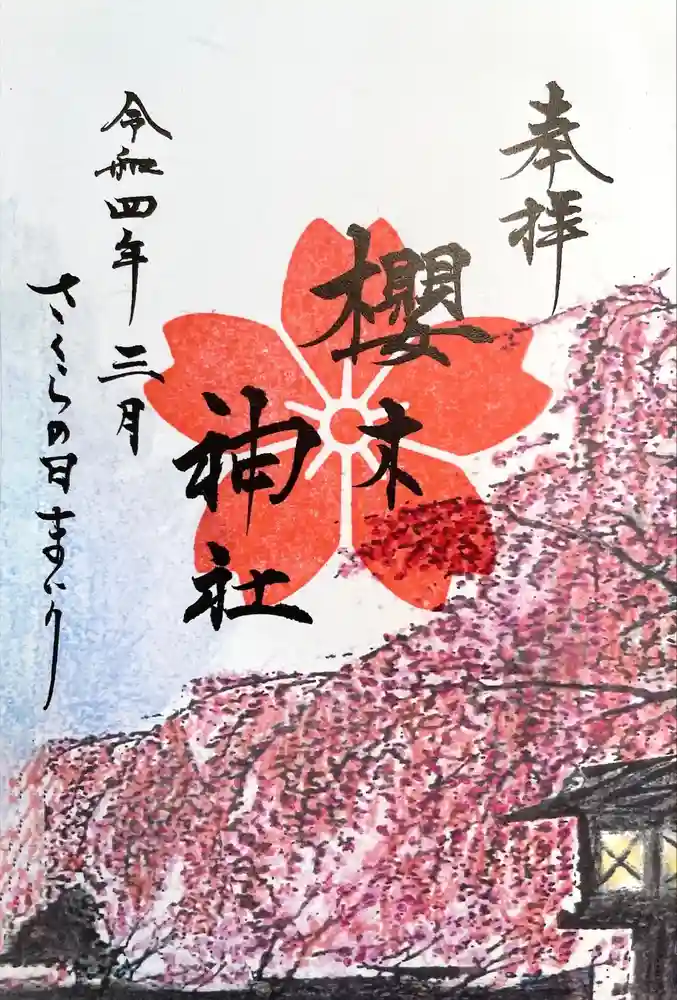 奉拝
櫻木
神社
令和四年三月
さくらの日まいり